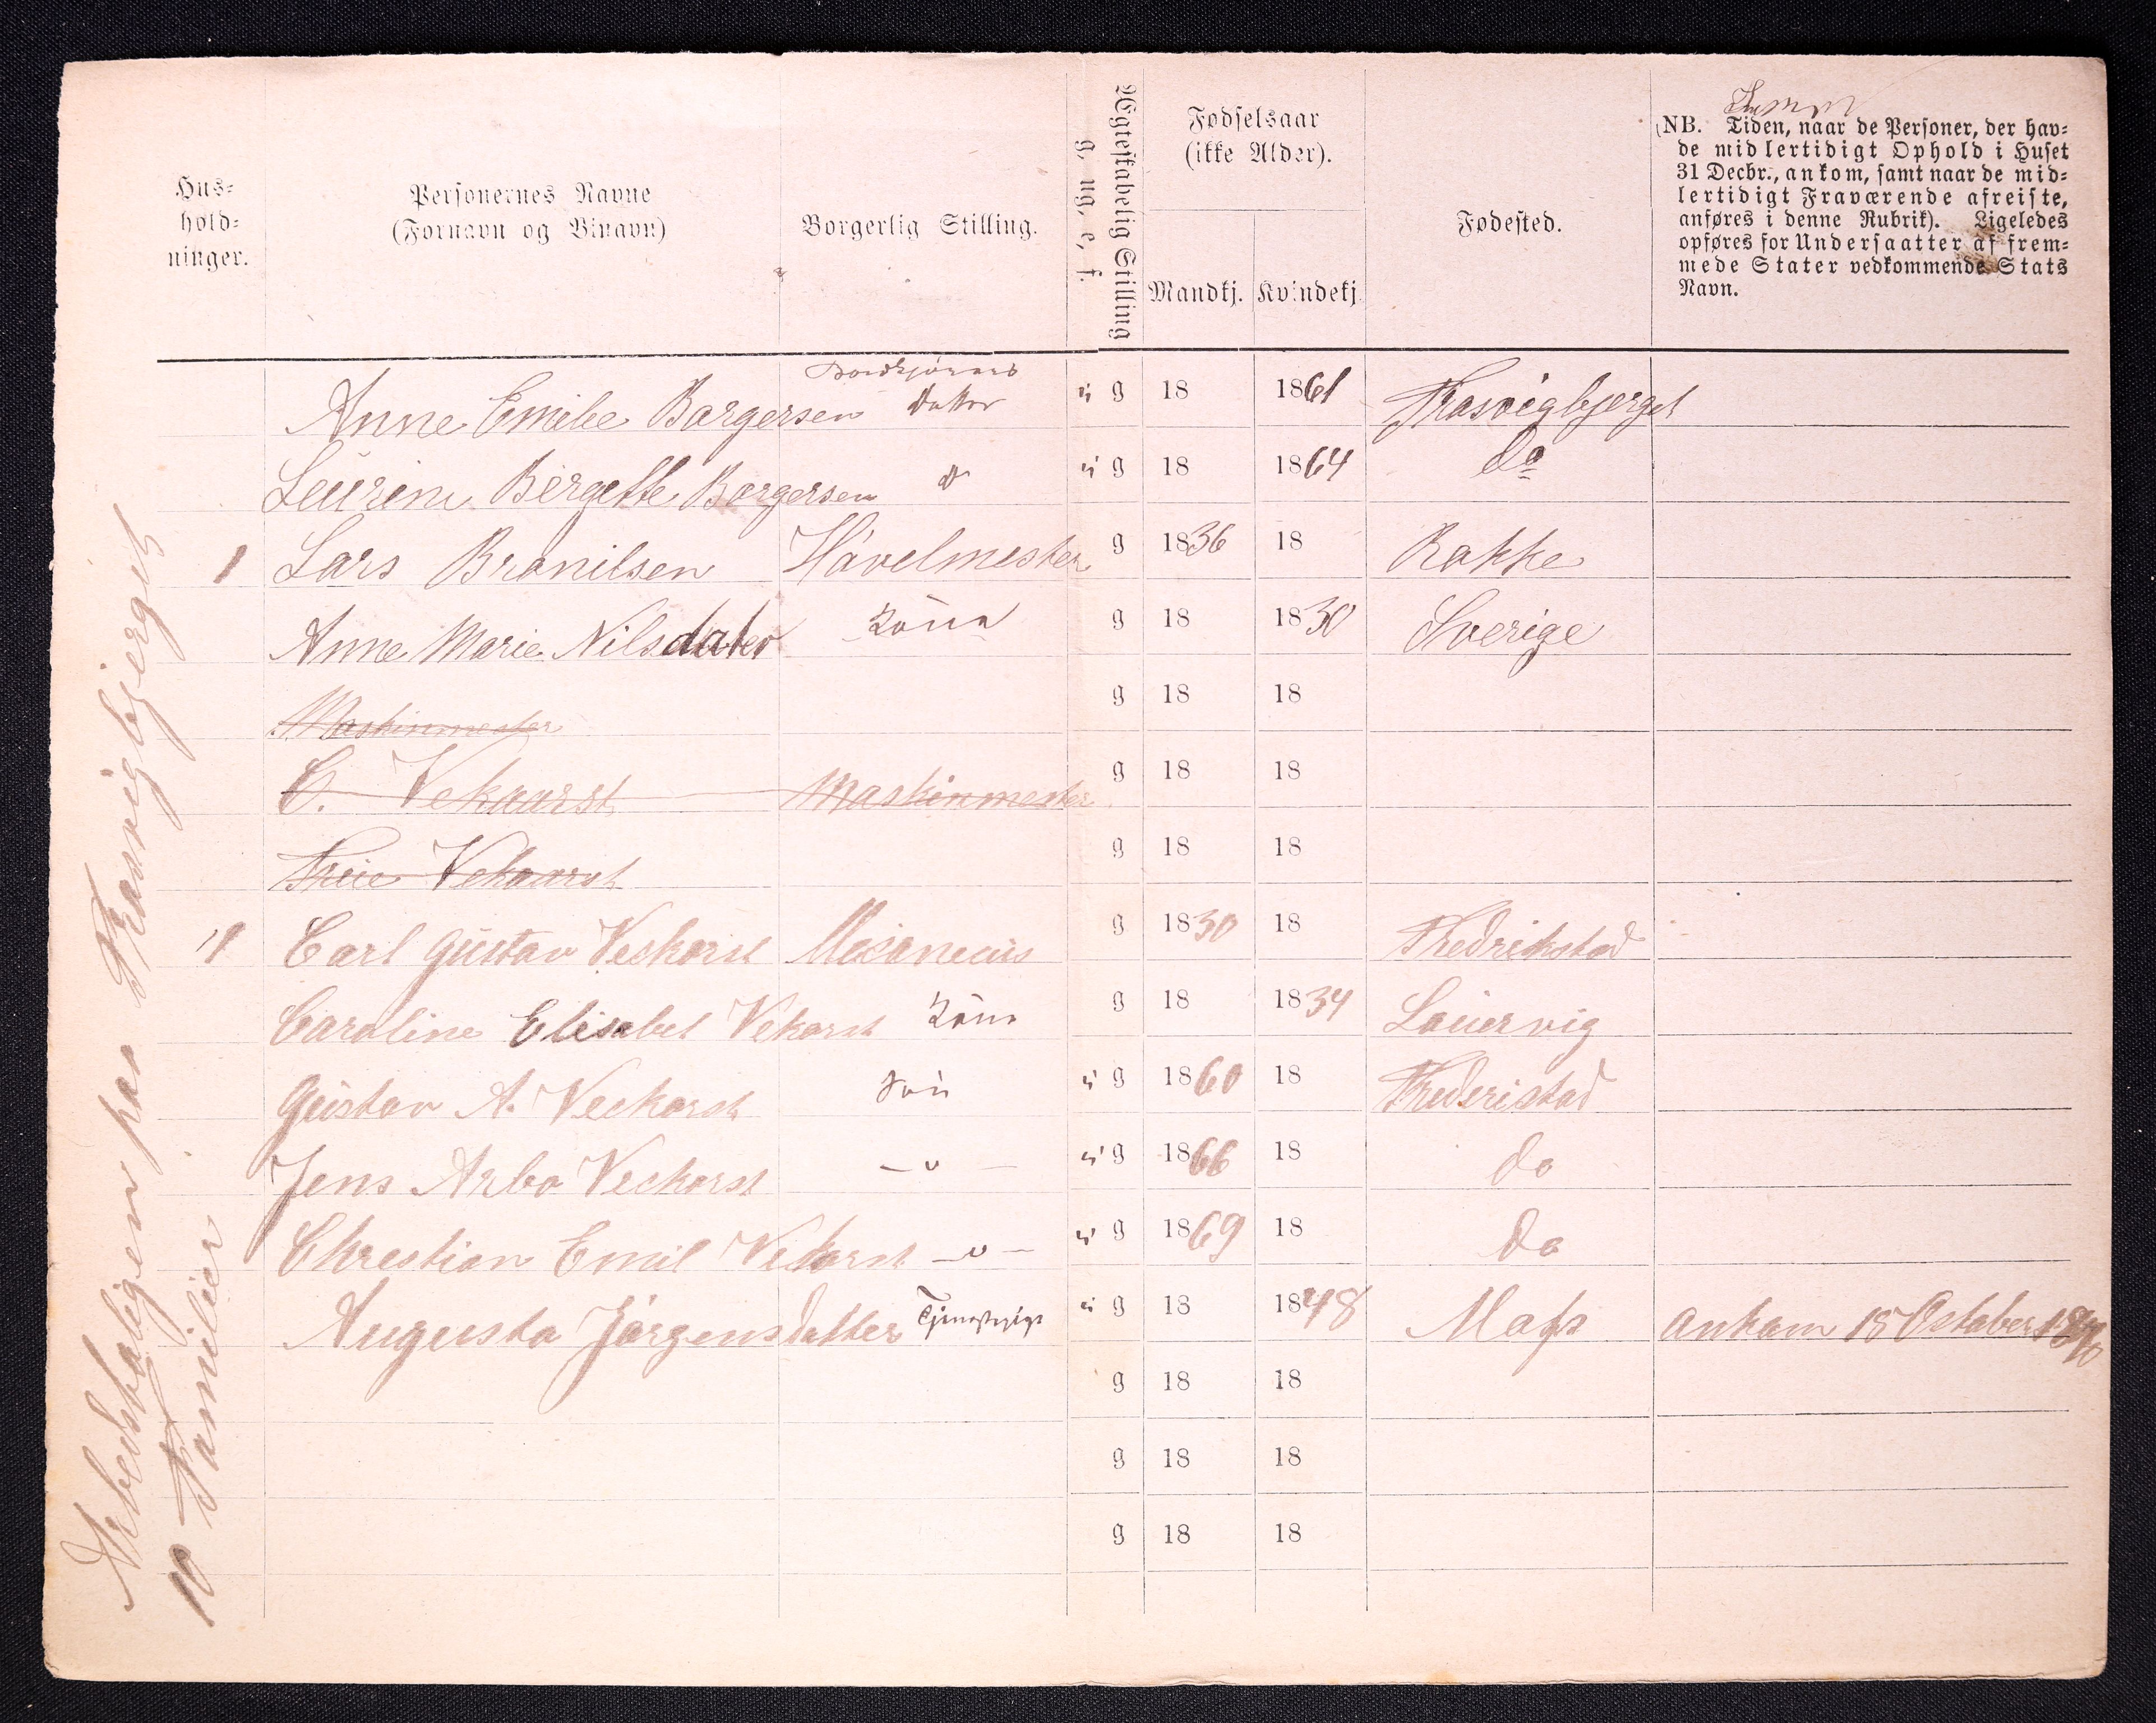 Hus-
hold-
ninger.
Personernes Navne
(Fornavn og Binavn)
Borgerlig Stilling.
Ægteskabelig Stilling
g, ug, e, f.
Fødselsaar
(ikke Alder).
Mandkj. Kvindekj.
Fødested.
(NB. Tiden, naar de Personer, der hav-
de midlertidigt Ophold i Huset
31 Decbr., ankom, samt naar de mid-
lertidigt Fraværende afreiste,
anføres i denne Rubrik). Ligeledes
opføres for Undersaatter af frem-
mede Stater vedkommende Stats
Navn.
Anne Emilie Borgersen Datter ug 18 1861 Trosvigbjerget
Laurine Bergette Borgersen ug 18 1864 do
1 Lars Bronilsen Hövelmester g 1836 18 Rakke
Anne Marie Nilsdater Kone g 18 1830 Sverige
Maskinmester g 18 18
C. Vekaarst Maskinmester g 18 18
Vekaarst g 18 18
1 Carl Gustav Veckorst Mecaneius g 1830 18 Fredrikstad
Caroline Elisabet Vekorst Kone g 18 1834 Lauervig
Gustav A. Veckorst Søn ug 1860 18 Frederistad
Jens Arbo Veckorst — " — ug 1866 18 do
Chrestian Emil Vekorst — " — ug 1869 18 do
Augusta Jörgensdatter Tjenestepige ug 18 1848 Moss Ankom 15 Octaber 1870
g 18 18
g 18 18
g 18 18
Arbeidsboligen paa Trosvigbjerget
10 Familier